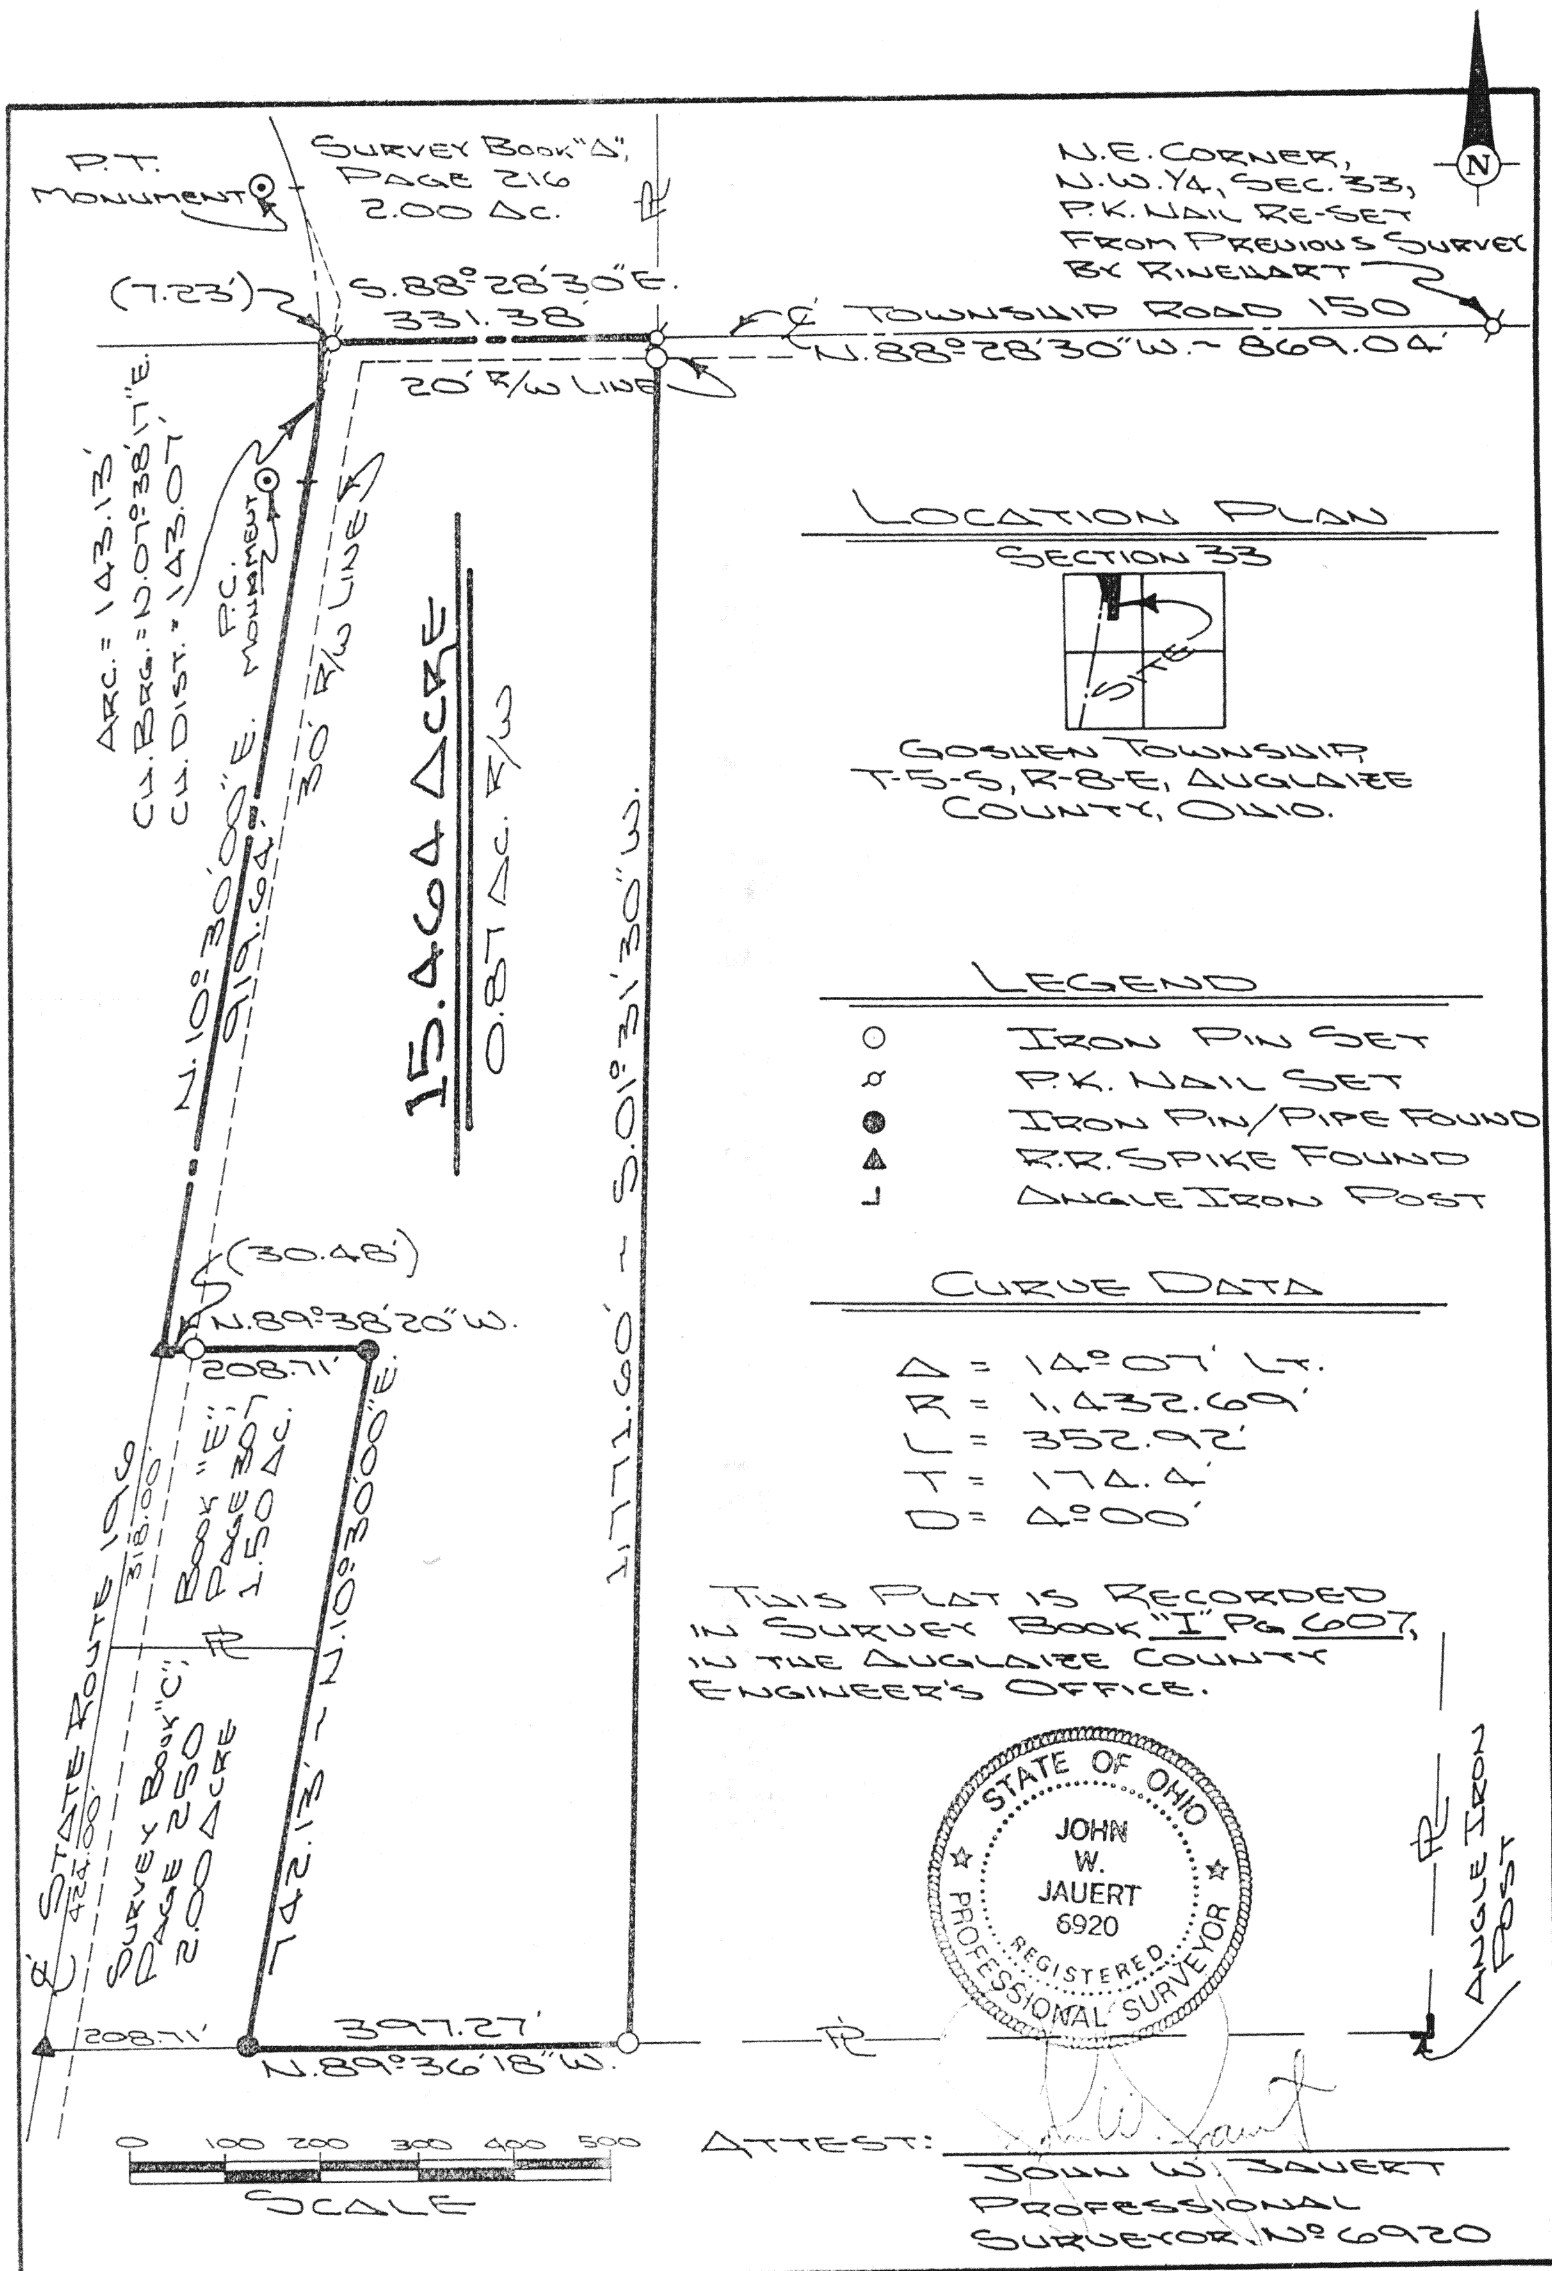 N
P.T.
MONUMENT
SURVEY BOOK "A",
PAGE 216
2.00 AC.
PL
N.E. CORNER,
N.W. 1/4, SEC. 33,
P.K. NAIL RE-SET
FROM PREVIOUS SURVEY
BY RINEHART
(7.23')
S.88°28'30"E.
331.38'
CL TOWNSHIP ROAD 150
N.88°28'30"W. ~ 869.04'
20' R/W LINE
ARC. = 143.13'
CH. BRG. = N.07°38'17"E.
CH. DIST. = 143.07'
P.C.
MONUMENT
30' R/W LINE
N.10°30'00"E.
919.64'
15.464 ACRE
0.87 AC. R/W
1,771.60' ~ S.01°31'30"W.
LOCATION PLAN
SECTION 33
SITE
GOSHEN TOWNSHIP,
T-5-S, R-8-E, AUGLAIZE
COUNTY, OHIO.
LEGEND
IRON PIN SET
P.K. NAIL SET
IRON PIN/PIPE FOUND
R.R. SPIKE FOUND
ANGLE IRON POST
(30.48')
N.89°38'20"W.
208.71'
CURVE DATA
Δ = 14°07' LT.
R = 1,432.69'
L = 352.92'
T = 174.4'
D = 4°00'
BOOK "E",
PAGE 307
1.50 AC.
318.00'
CL STATE ROUTE 196
424.00'
PL
SURVEY BOOK "C",
PAGE 250
2.00 ACRE
742.13' ~ N.10°30'00"E.
THIS PLAT IS RECORDED
IN SURVEY BOOK "I" PG 607,
IN THE AUGLAIZE COUNTY
ENGINEER'S OFFICE.
STATE OF OHIO
JOHN
W.
JAUERT
6920
REGISTERED
PROFESSIONAL SURVEYOR
PL
ANGLE IRON
POST
208.71'
397.27'
N.89°36'18"W.
PL
0 100 200 300 400 500
SCALE
ATTEST: John W. Jauert
JOHN W. JAUERT
PROFESSIONAL
SURVEYOR, Nº 6920